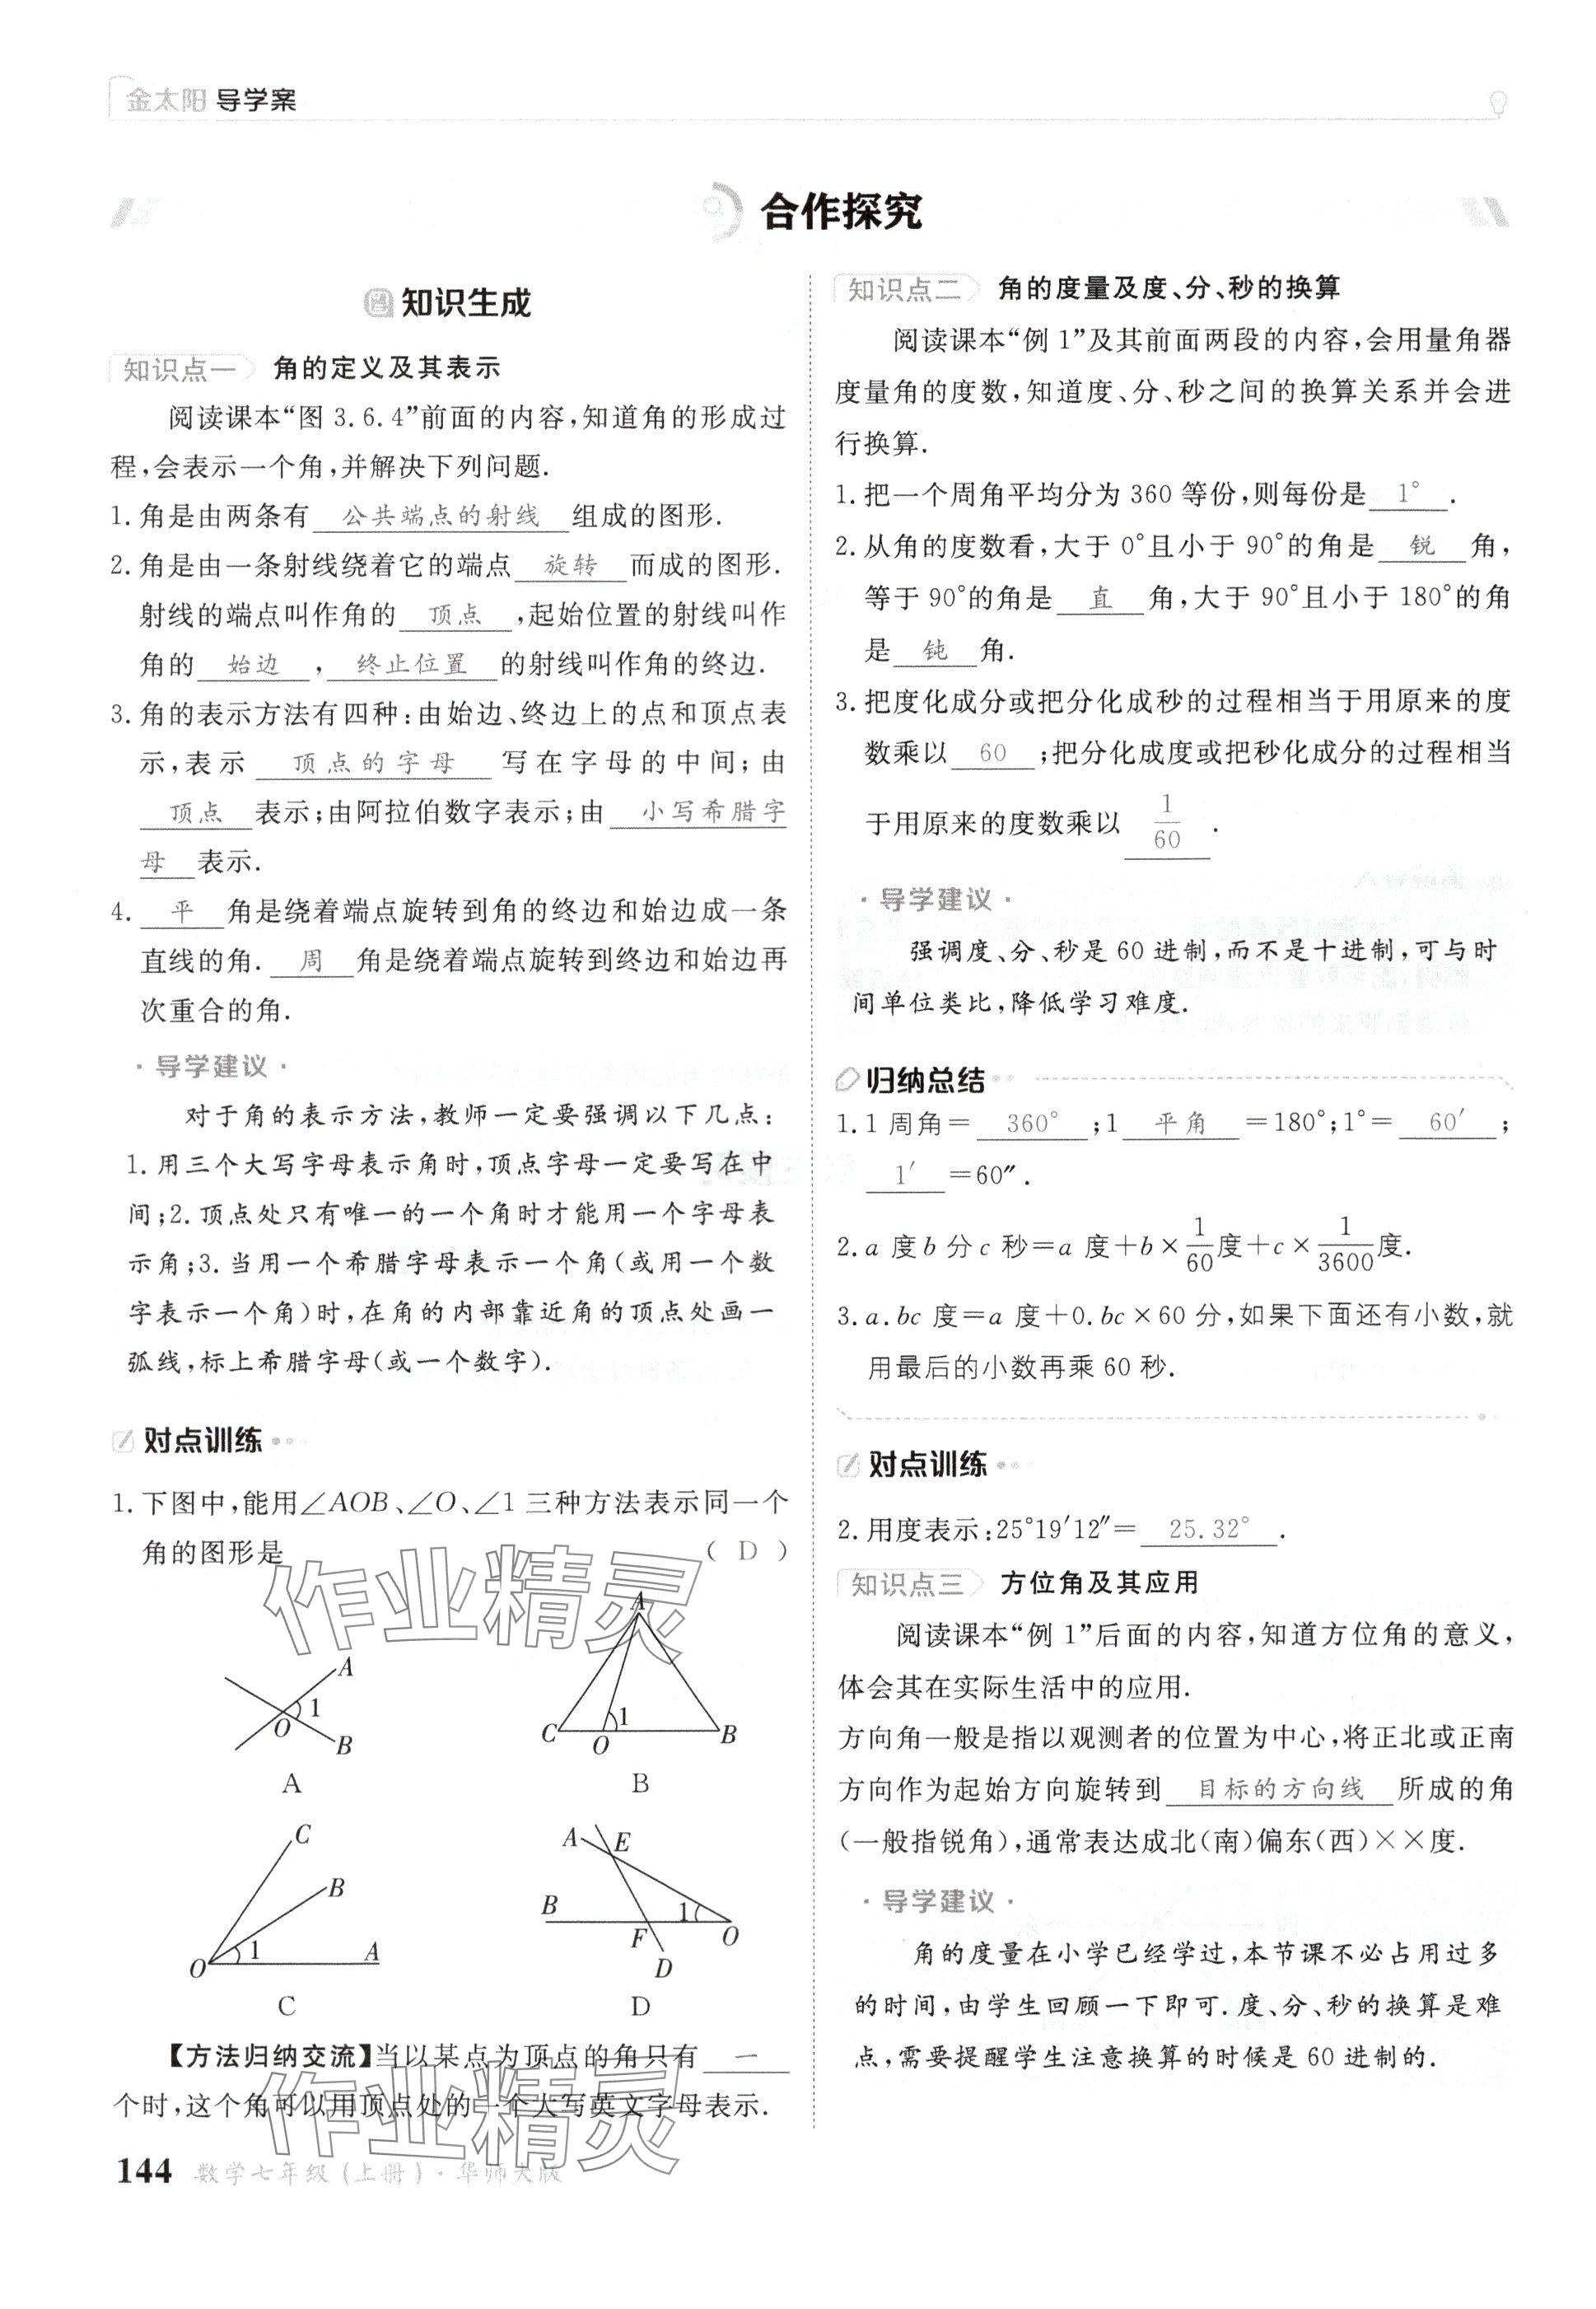 金太阳 导学案
合作探究
知识生成
知识点一 角的定义及其表示
阅读课本“图 3.6.4”前面的内容,知道角的形成过
程,会表示一个角,并解决下列问题.
1. 角是由两条有 公共端点的射线 组成的图形.
2. 角是由一条射线绕着它的端点 旋转 而成的图形.
射线的端点叫作角的 顶点 ,起始位置的射线叫作
角的 始边 , 终止位置 的射线叫作角的终边.
3. 角的表示方法有四种:由始边、终边上的点和顶点表
示,表示 顶点的字母 写在字母的中间;由
顶点 表示;由阿拉伯数字表示;由 小写希腊字
母 表示.
4. 平 角是绕着端点旋转到角的终边和始边成一条
直线的角. 周 角是绕着端点旋转到终边和始边再
次重合的角.
· 导学建议 ·
对于角的表示方法,教师一定要强调以下几点:
1. 用三个大写字母表示角时,顶点字母一定要写在中
间;2. 顶点处只有唯一的一个角时才能用一个字母表
示角;3. 当用一个希腊字母表示一个角(或用一个数
字表示一个角)时,在角的内部靠近角的顶点处画一
弧线,标上希腊字母(或一个数字).
对点训练
1. 下图中,能用∠AOB、∠O、∠1 三种方法表示同一个
角的图形是 ( D )
A
O
1
B
A
A
C
O
1
B
B
C
B
O
1
A
C
A
E
B
1
F
O
D
D
【方法归纳交流】当以某点为顶点的角只有 一
个时,这个角可以用顶点处的一个大写英文字母表示.
144 数学七年级(上册)·华师大版
知识点二 角的度量及度、分、秒的换算
阅读课本“例 1”及其前面两段的内容,会用量角器
度量角的度数,知道度、分、秒之间的换算关系并会进
行换算.
1. 把一个周角平均分为 360 等份,则每份是 1° .
2. 从角的度数看,大于 0°且小于 90°的角是 锐 角,
等于 90°的角是 直 角,大于 90°且小于 180°的角
是 钝 角.
3. 把度化成分或把分化成秒的过程相当于用原来的度
数乘以 60 ;把分化成度或把秒化成分的过程相当
于用原来的度数乘以 1/60 .
· 导学建议 ·
强调度、分、秒是 60 进制,而不是十进制,可与时
间单位类比,降低学习难度.
归纳总结
1. 1 周角= 360° ;1 平角 =180°;1°= 60′ ;
1′ =60″.
2. a 度 b 分 c 秒=a 度+b×1/60度+c×1/3600度.
3. a.bc 度=a 度+0.bc×60 分,如果下面还有小数,就
用最后的小数再乘 60 秒.
对点训练
2. 用度表示:25°19′12″= 25.32° .
知识点三 方位角及其应用
阅读课本“例 1”后面的内容,知道方位角的意义,
体会其在实际生活中的应用.
方向角一般是指以观测者的位置为中心,将正北或正南
方向作为起始方向旋转到 目标的方向线 所成的角
(一般指锐角),通常表达成北(南)偏东(西)××度.
· 导学建议 ·
角的度量在小学已经学过,本节课不必占用过多
的时间,由学生回顾一下即可.度、分、秒的换算是难
点,需要提醒学生注意换算的时候是 60 进制的.
作业精灵
作业精灵